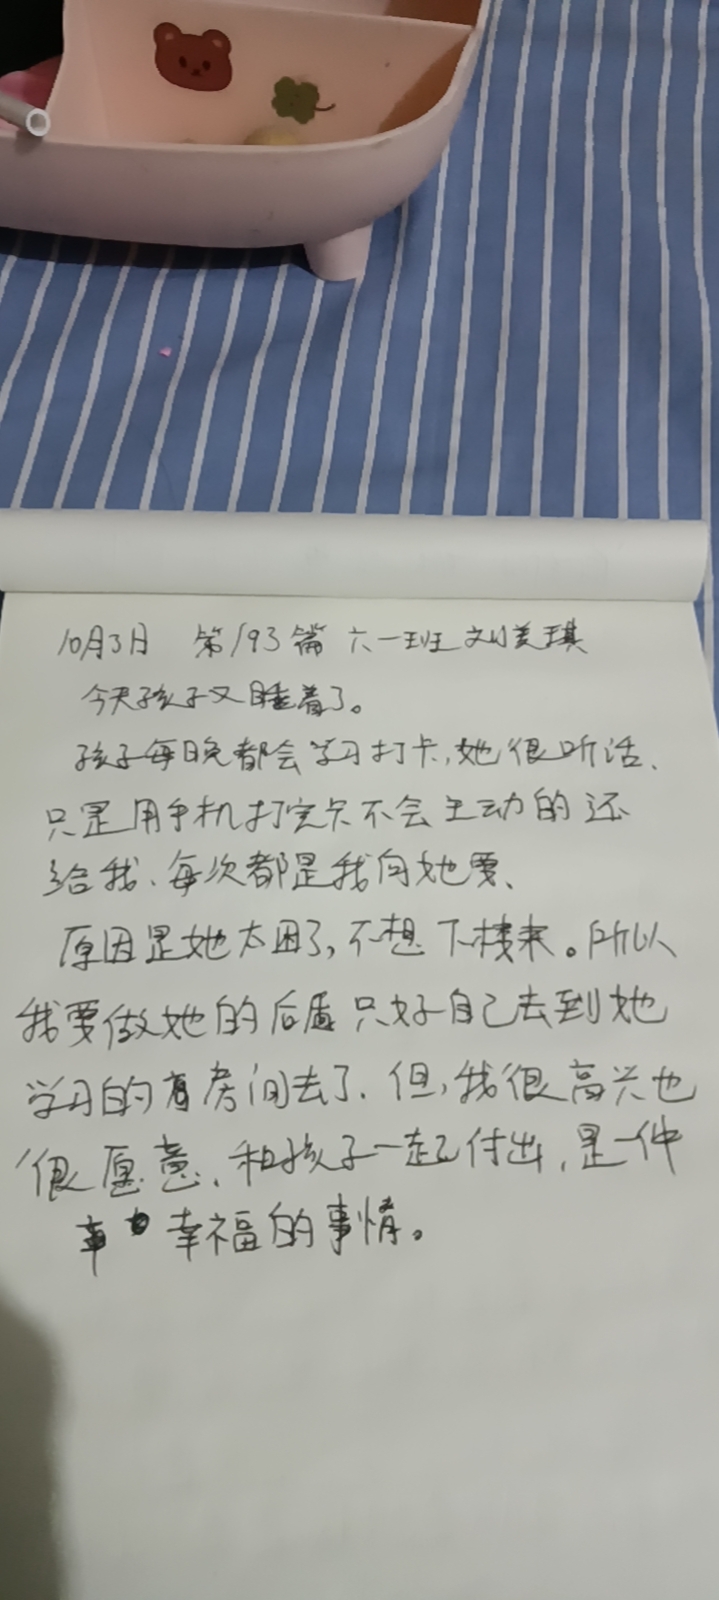 10月3日 第193篇 六一班 刘美琪
今天孩子又睡着了。
孩子每晚都会学习打卡,她很听话、
只是用手机打完卡不会主动的还
给我、每次都是我向她要、
原因是她太困了,不想下楼来。所以
我要做她的后盾只好自己去到她
学习的房间去了、但,我很高兴也
很愿意、和孩子一起付出,是一件
幸福的事情。